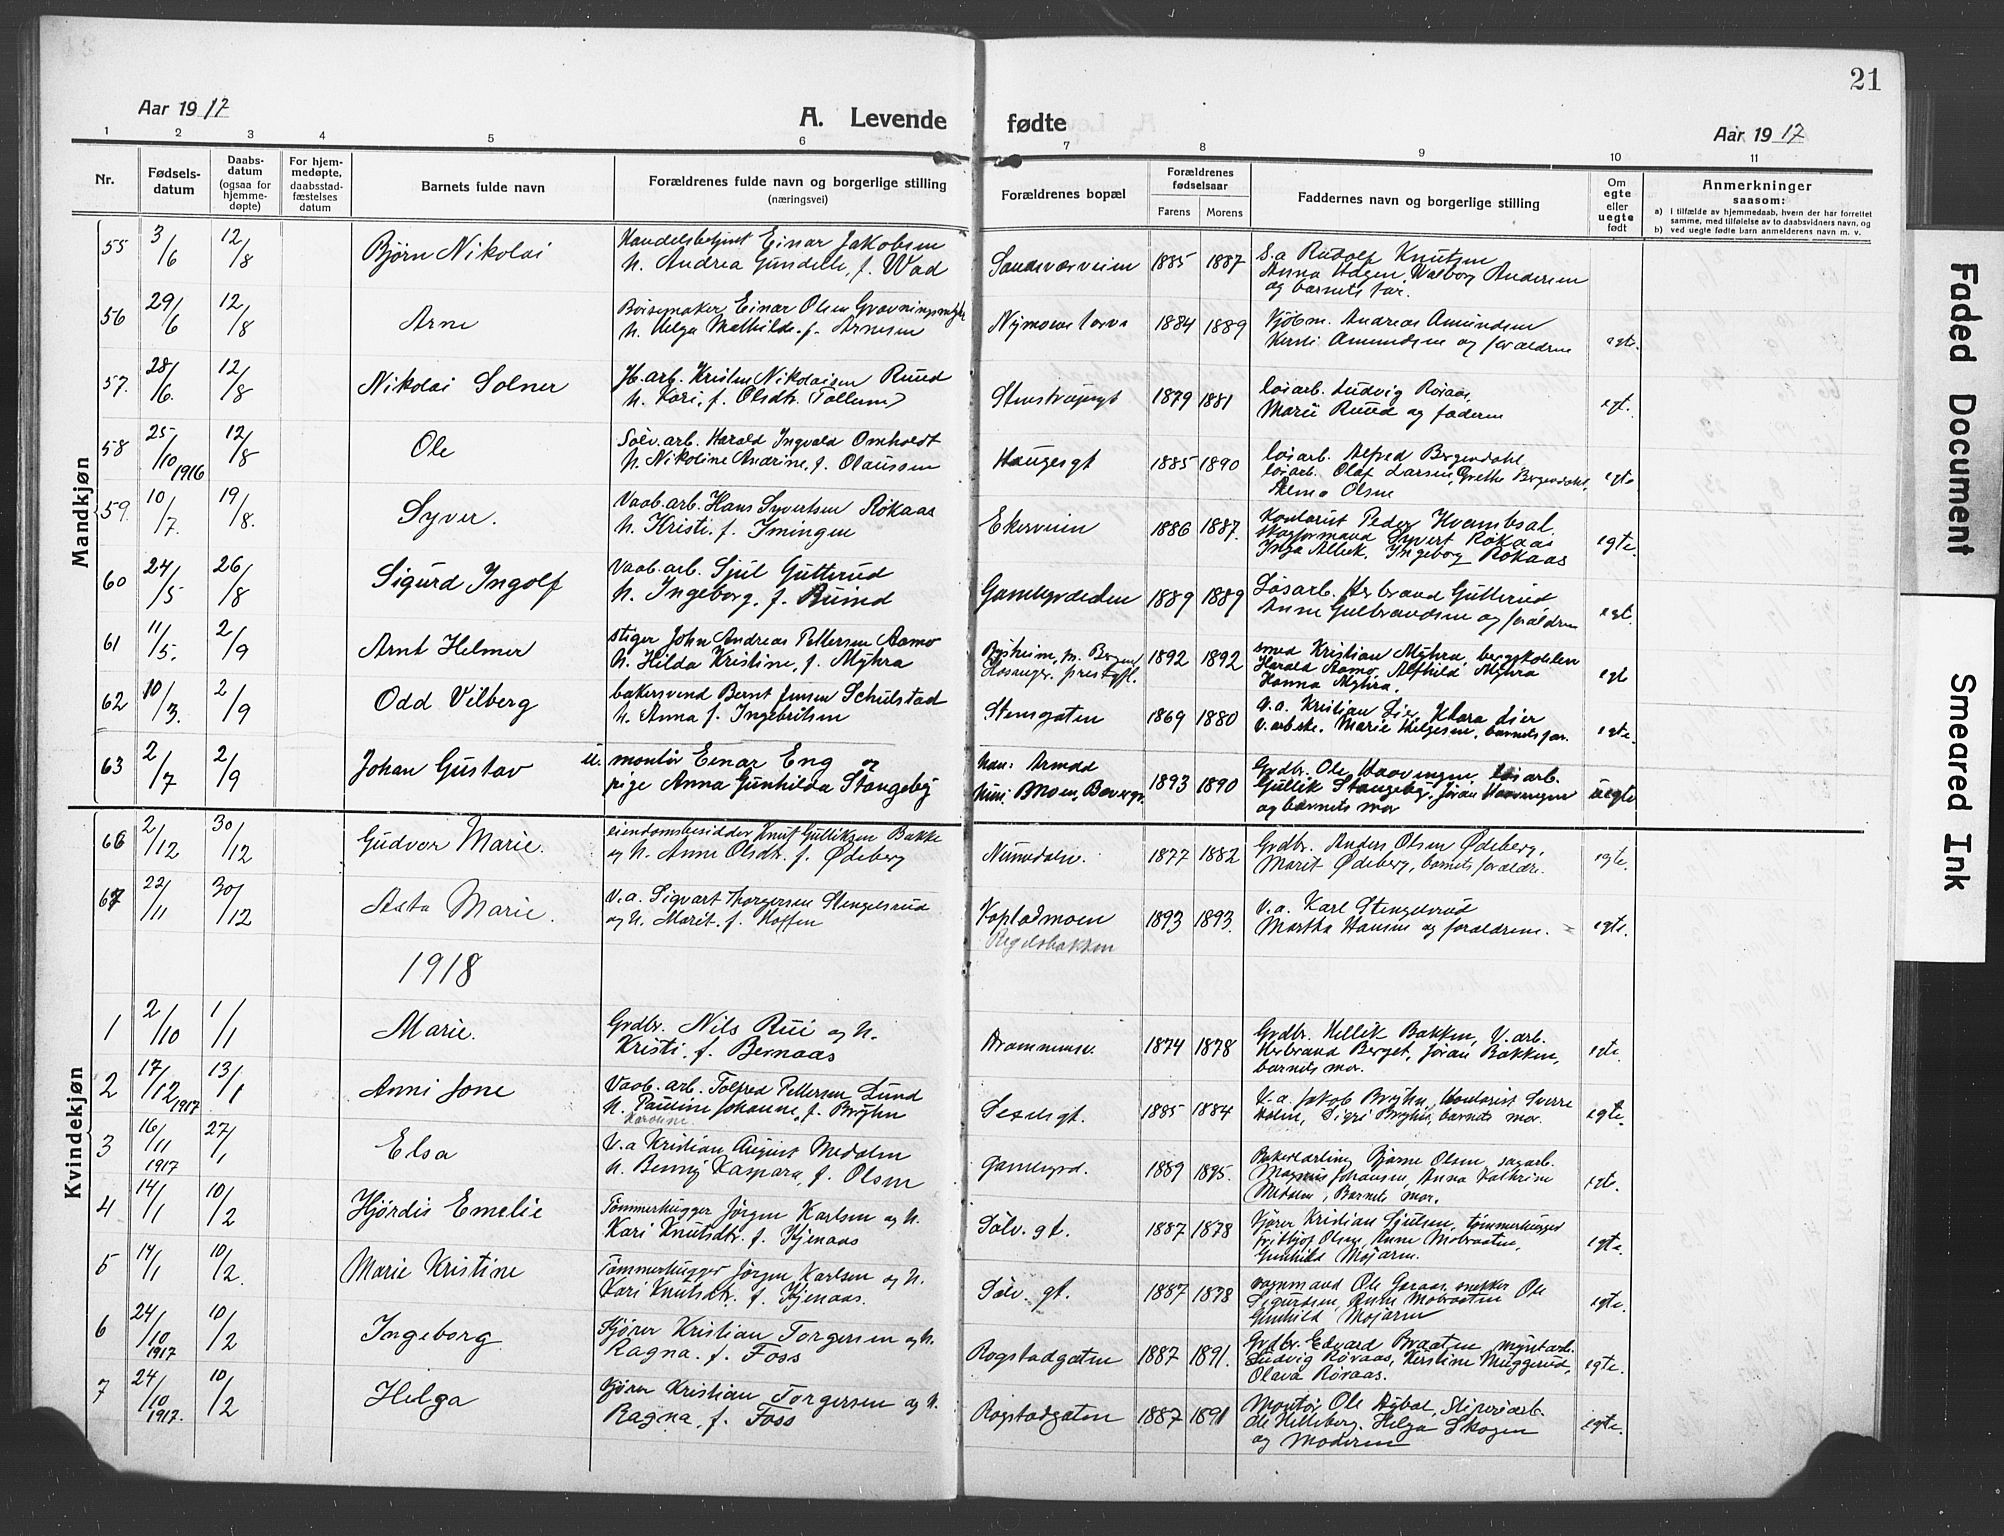 21
Aar 19 17
A. Levende fødte
Aar 19 17
1 2 3 4 5 6 7 8 9 10 11
Nr.
Fødsels-
datum
Daabs-
datum
(ogsaa for
hjemme-
døpte)
For hjem-
medøpte,
daabsstad-
fæstelses
datum
Barnets fulde navn
Forældrenes fulde navn og borgerlige stilling
(næringsvei)
Forældrenes bopæl
Forældrenes
fødselsaar
Farens Morens
Faddernes navn og borgerlige stilling
Om
egte
eller
uegte
født
Anmerkninger
saasom:
a) I tilfælde av hjemmedaab, hvem der har forrettet
samme, med tilføielse av to daabsvidners navn, og
b) ved uegte fødte barn anmelderens navn m. v.
Mandkjøn
55 3/6 12/8 Bjørn Nikolai
Handelsbetjent Einar Jakobsen
h. Andrea Gundelle, f. Wad
1885 1887
S.a Rudolf Knutsen
Anna Hagen, Walborg Andersen
og barnets far.
56 29/6 12/8 Arne
Bøssemaker Einar Olsen
h. Helga Mathilde f. Arnesen
1884 1889
Andreas Amundsen
Amundsen og forældrene
egte.
57. 28/6. 12/8 Nikolai Solner
Kristen Nikolaisen Ruud
h. Kari, f. Olsdtr.
1879 1881
løsarb. Ludvig Røraas,
Marie Ruud og faderen
egt.
58 25/10 1916 12/8 Ole
Sølv. arb. Harald Ingvald Omholdt
h. Nikoline Andrine, f. Olaussen
Haugesgt
1885 1890
løsarb. Alfred Bergendahl
løsarb. Olaf Larsen, Grethe Bergendahl,
Alma Olsen
egte
59. 10/7. 19/8. Syver.
Vaab. arb. Hans Syvertsen Røkaas
h. Kristi. f. Imingen
Ekerveien
1886 1887.
Kontorist Peder Hvambsal
skogformand Syvert Røkaas
Inga Albek, Ingeborg Røkaas
egte.
60 24/5 26/8 Sigurd Ingolf
Vaab. arb. Sjul Gutterud
h. Ingeborg, f. Ruud
1889 1889
Løsarb. Herbrand Gutterud
Anne Gulbrandsen og foráldren
egt.
61 11/5. 2/9 Arnt Helmer
stiger John Andreas Pettersen Aamo
h. Hilda Kristine, f. Myhra
1892 1892
smed Kristian Myhra, bergskolelev
Harald Aamo, Alfhild Myhra
Hanna Myhra.
egt
62 10/3. 2/9 Odd Vilberg
bakersvend Bernt Jensen Schulstad
h. Anna f. Ingebritsen
Stensgaten
1869 1880
V.a. Kristian Lier, Klara Lier
V. arbske. Marie Helgesen, barnets far.
egte.
63 2/7 2/9 Johan Gustav u.
montør Einar Eng og
pige Anna Gunhilda Stangeby
han: Armad
hun: Moen,
1893 1890
Grdbr. Ole Haavengen, løsarb.
Gullik Stangeby, Jøran Haavengen
og barnets mor
uegte
Kvindekjøn
66 2/12 30/12 Gudvor Marie.
eiendomsbesidder Knut Gulliksen Bakke
og h. Anne Olsdtr. f. Ødeberg
Numedalsv.
1877 1882
Grdbr. Anders Olsen Ødeberg,
Marit Ødeberg, barnets forældre.
egte.
67 22/11 30/12 Asta Marie.
V.a. Sigvart Thorgersen Stengelsrud
og h. Marit. f. Hoffen
Vopladmoen
Pegelsbakken
1893 1893.
V.a. Karl Stengelsrud
Martha Hansen og forældrene.
egte.
1918
1 2/10 1/1 Marie.
Grdbr. Nils Rui og h.
Kristi. f. Bernaas
Drammensv.
1874 1878
Grdbr. Hellik Bakken, V. arb.
Herbrand Berget, Jøran Bakken,
barnets mor.
egte.
2 17/12 1917 13/1 Anni Jone
Vaab. arb. Tolfred Pettersen Lund
h. Pauline Johanne, f. Bryhn
1885 1884
V.a. Jakob Bryhn, Kontorist Sverre
Holm, Sigri Bryhn, barnets mor.
egte.
3 16/11 1917 27/1 Elsa
V.a Kristian August Medalen
h. Benny Kaspara, f. Olsen
Gamlegrd.
1889 1895.
Bakerlærling Bjarne Olsen sagarb.
Magnus Johansen, Anna Kathrine
Medalen, Barnets mor.
egte.
4 14/1 10/2 Hjørdis Emelie
Tømmerhugger Jørgen Karlsen og h.
Kari Knutsdtr. f. Hjenaas
Sølv. gt.
1887 1878
Kjører Kristian Sjulsen, tømmerhugger
Fritjof Olsen, Anne Mobraaten,
Gunhild Mojarm.
egte
5 14/1 10/2. Marie Kristine
Tømmerhugger Jørgen Karlsen og h.
Kari Knutsdtr. f. Hjenaas.
Sølv. gt.
1887 1878
vognmand Ole Garaas, snekker Ole
Sigurdsen, Anne Mobraaten
Gunhild Mojarm
egte.
6 24/10 1917 10/2 Ingeborg
Kjører Kristian Torgersen og h.
Ragna. f. Foss
Rogstadgaten
1887 1891.
Grdbr. Edvard Braaten, myntarb.
Ludvig Røraas, Kerstine Muggerud,
Olava Røraas.
egte.
7 24/10 1917. 10/2 Helga
Kjører Kristian Torgersen og h.
Ragna, f. Foss
Rogstadgaten
1887 1891
Montør Ole Dybal, Sliperiarb.
Ole Helleberg, Helga Skogen
og Moderen
egte.
Faded Document
Smeared Ink